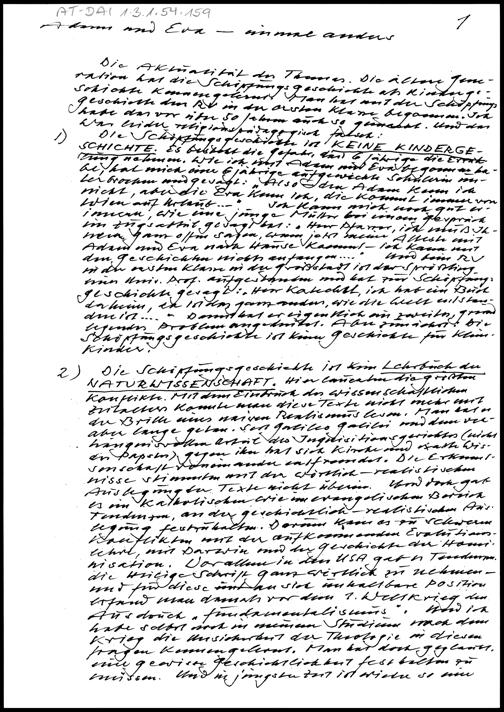 AT-DAI 1.3.1.54.159
1
Adam und Eva – einmal anders
Die Aktualität des Themas. Die ältere Gene-
ration hat die Schöpfungsgeschichte als Kinderge-
schichte kennengelernt. Man hat mit der Schöpfungs-
geschichte den RU in der ersten Klasse begonnen. Ich
habe das vor über 50 Jahren auch so gemacht. Und das
war leider religionspädagogisch falsch.
1) Die Schöpfungsgeschichte ist KEINE KINDERGE-
SCHICHTE. Es besteht die Gefahr, daß 6jährige die Erzäh-
lung nehmen. Wie ich mit Adam und Eva begonnen ha-
be, hat mich eine 6jährige aufgeweckte Schülerin un-
terbrochen und gesagt: "Also den Adam kenn ich
nicht, aber die Eva kenn ich, die kommt immer von
Wien auf Urlaub..." Ich kann mich noch gut er-
innern, wie eine junge Mutter bei einem Gespräch
gesagt hat: "Herr Pfarrer, ich muß Ih-
nen ganz offen sagen, wenn jetzt meine Älteste mit
Adam und Eva nach Hause kommt – ich kann mit
den Geschichten nichts anfangen...." Und beim RU
in der ersten Klasse in der Großstadt ist der Sprößling
eines Univ. Prof. aufgestanden und hat zur Schöpfungs-
geschichte gesagt: "Herr Katechet, ich hab ein Buch
daheim, da ist das ganz anders, wie die Welt entstan-
den ist...." Damit hat er eigentlich ein zweites, grund
legendes Problem angedeutet. Aber zunächst: Die
Schöpfungsgeschichte ist keine Geschichte für kleine
Kinder.
2) Die Schöpfungsgeschichte ist kein Lehrbuch der
NATURWISSENSCHAFT. Hier lauerten die größten
Konflikte. Mit dem Einbruch des wissenschaftlichen
Zeitalters konnte man diese Texte nicht mehr mit
der Brille eines naiven Realismus lesen. Man hat es
aber lange getan. Seit Galileo Galilei und dem ver-
hängnisvollen Urteil des Inquisitionsgerichtes (nicht
des Papstes) gegen ihn hat sich Kirche und exakte Wis-
senschaft voneinander entfremdet. Die Erkennt-
nisse stimmten mit der wörtlich-realistischen
Auslegung der Texte nicht überein. Und doch gab
es im Katholischen wie im evangelischen Bereich
Tendenzen, an der geschichtlich-realistischen Aus-
legung festzuhalten. Darum kam es zu schweren
Konflikten mit der aufkommenden Evolutions-
lehre, mit Darwin und der Geschichte der Homi-
nisation. Vor allem in den USA gab es Tendenzen
die Heilige Schrift ganz wörtlich zu nehmen –
und für diese unhaltbare Position
erfand man damals vor dem 1. Weltkrieg den
Ausdruck "Fundamentalismus". Und ich
habe selbst noch in meinem Studium nach dem
Krieg die Unsicherheit der Theologie in diesen
Fragen kennengelernt. Man hat doch geglaubt,
eine gewisse Geschichtlichkeit festhalten zu
müssen. Und in jüngster Zeit ist wieder so eine